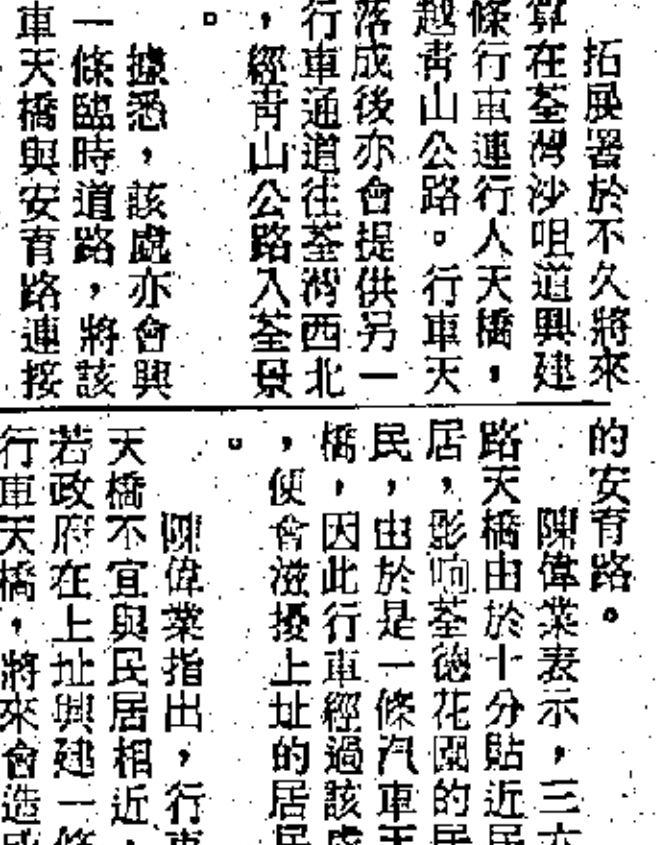 拓展署於不久將來
算在荃灣沙咀道興建
條行車連行人天橋，
越青山公路。行車天
落成後亦會提供另一
行車通道往荃灣西北
，經青山公路入荃景
。
據悉，該處亦會興
一條臨時道路，將該
車天橋與安育路連接
的安育路。
陳偉業表示，三
路天橋由於十分貼近
居，影响荃德花園的
民，由於是一條汽車
橋，因此行車經過該
，便會滋擾上址的居
。
陳偉業指出，行
天橋不宜與民居相近，
若政府在上址興建一
行車天橋，將來會造